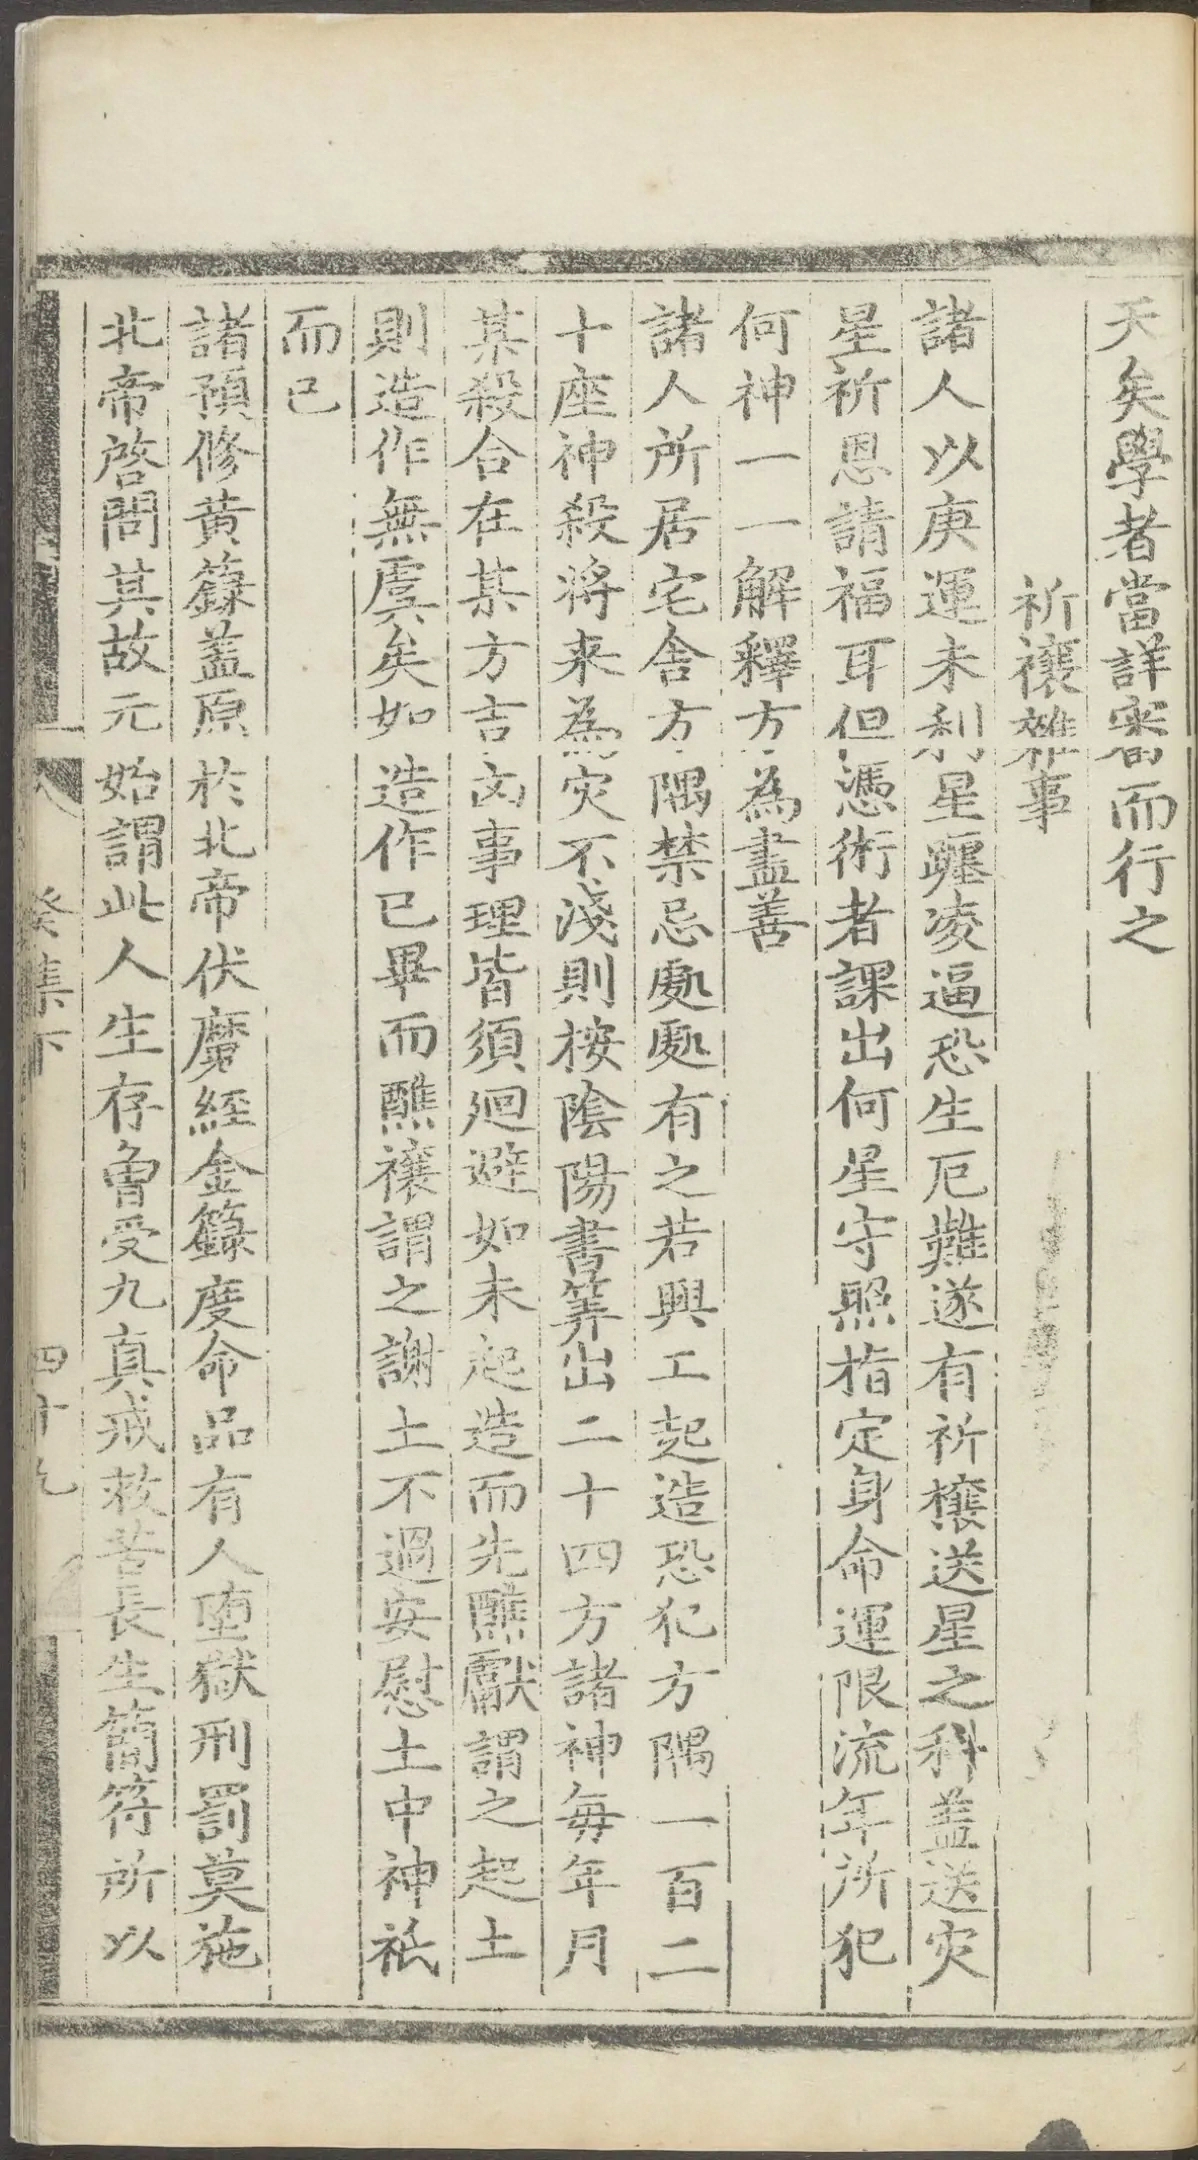 天矣學者當詳審而行之
祈禳雜事
諸人以庚運未利星躔凌逼恐生厄難遂有祈禳送星之科盖送灾
星祈恩請福耳但憑術者課出何星守照指定身命運限流年所犯
何神一一解釋方為盡善
諸人所居宅舍方隅禁忌處處有之若興工起造恐犯方隅一百二
十座神殺將来為灾不淺則按陰陽書筭出二十四方諸神每年月
某殺合在某方吉凶事理皆須迴避如未起造而先醮獻謂之起土
則造作無虞矣如造作已畢而醮禳謂之謝土不過安慰土中神祇
而已
諸預修黃籙盖原於北帝伏魔經金籙度命品有人堕獄刑罰莫施
北帝啓問其故元始謂此人生存曾受九真戒救苦長生簡符所以
癸集下
四十九